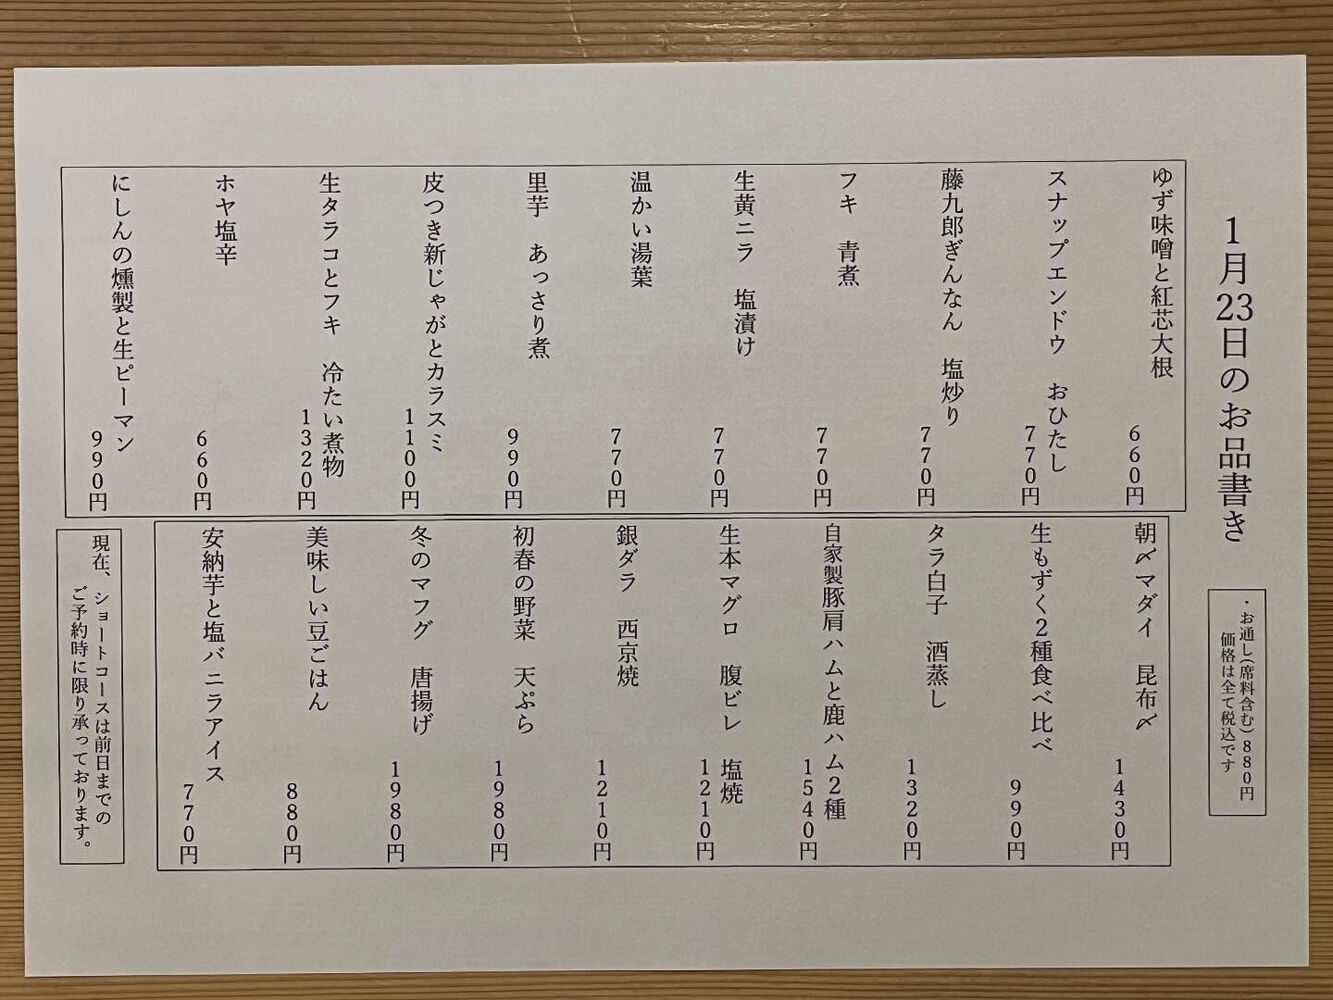 1月23日のお品書き
・お通し(席料含む)880円
価格は全て税込です
ゆず味噌と紅芯大根
660円
スナップエンドウ　おひたし
770円
藤九郎ぎんなん　塩炒り
770円
フキ　青煮
770円
生黄ニラ　塩漬け
770円
温かい湯葉
770円
里芋　あっさり煮
990円
皮つき新じゃがとカラスミ
1100円
生タラコとフキ　冷たい煮物
1320円
ホヤ塩辛
660円
にしんの燻製と生ピーマン
990円
朝〆マダイ　昆布〆
1430円
生もずく2種食べ比べ
990円
タラ白子　酒蒸し
1320円
自家製豚肩ハムと鹿ハム2種
1540円
生本マグロ　腹ビレ　塩焼
1210円
銀ダラ　西京焼
1210円
初春の野菜　天ぷら
1980円
冬のマフグ　唐揚げ
1980円
美味しい豆ごはん
880円
安納芋と塩バニラアイス
770円
現在、ショートコースは前日までの
ご予約時に限り承っております。